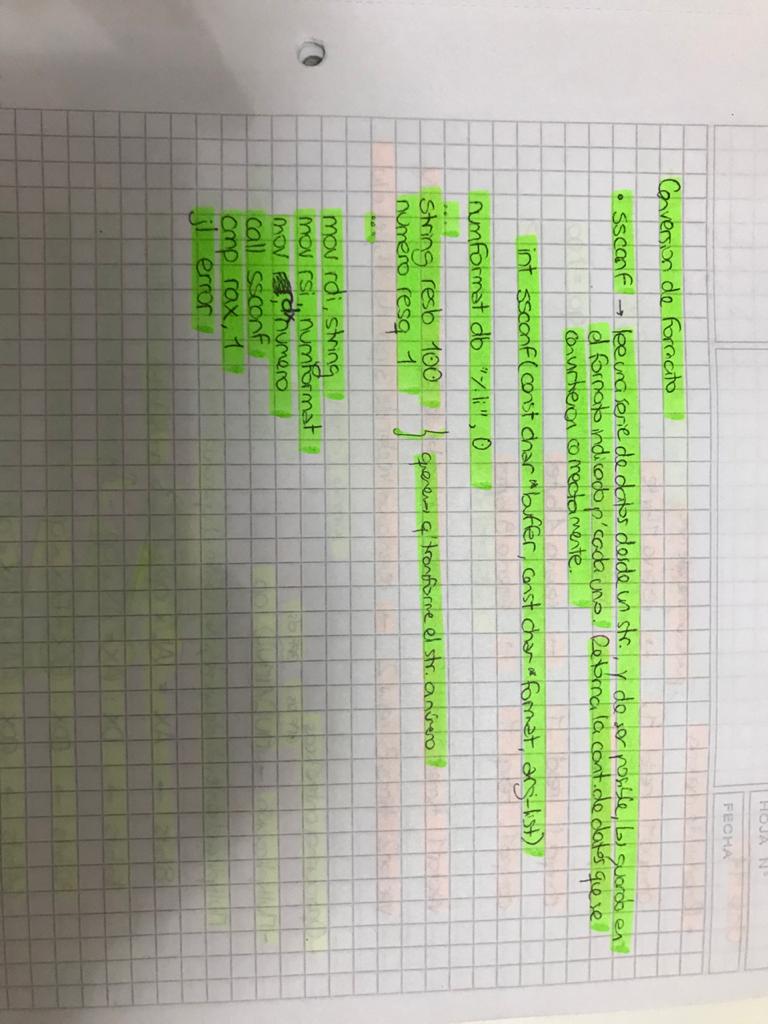 HOJA Nº
FECHA
Conversion de formato
• ssconf → lee una serie de datos desde un str, y de ser posible, los guarda en
el formato indicado p' cada uno. Retorna la cant. de datos que se
convirtieron correctamente.
int ssconf (const char *buffer, const char *format, arg-list)
numformat db "%li", 0
...
string resb 100
numero resq 1
} queremos q' transforme el str. a número
...
mov rdi, string
mov rsi, numformat
mov rdx, numero
call ssconf
cmp rax, 1
jl error